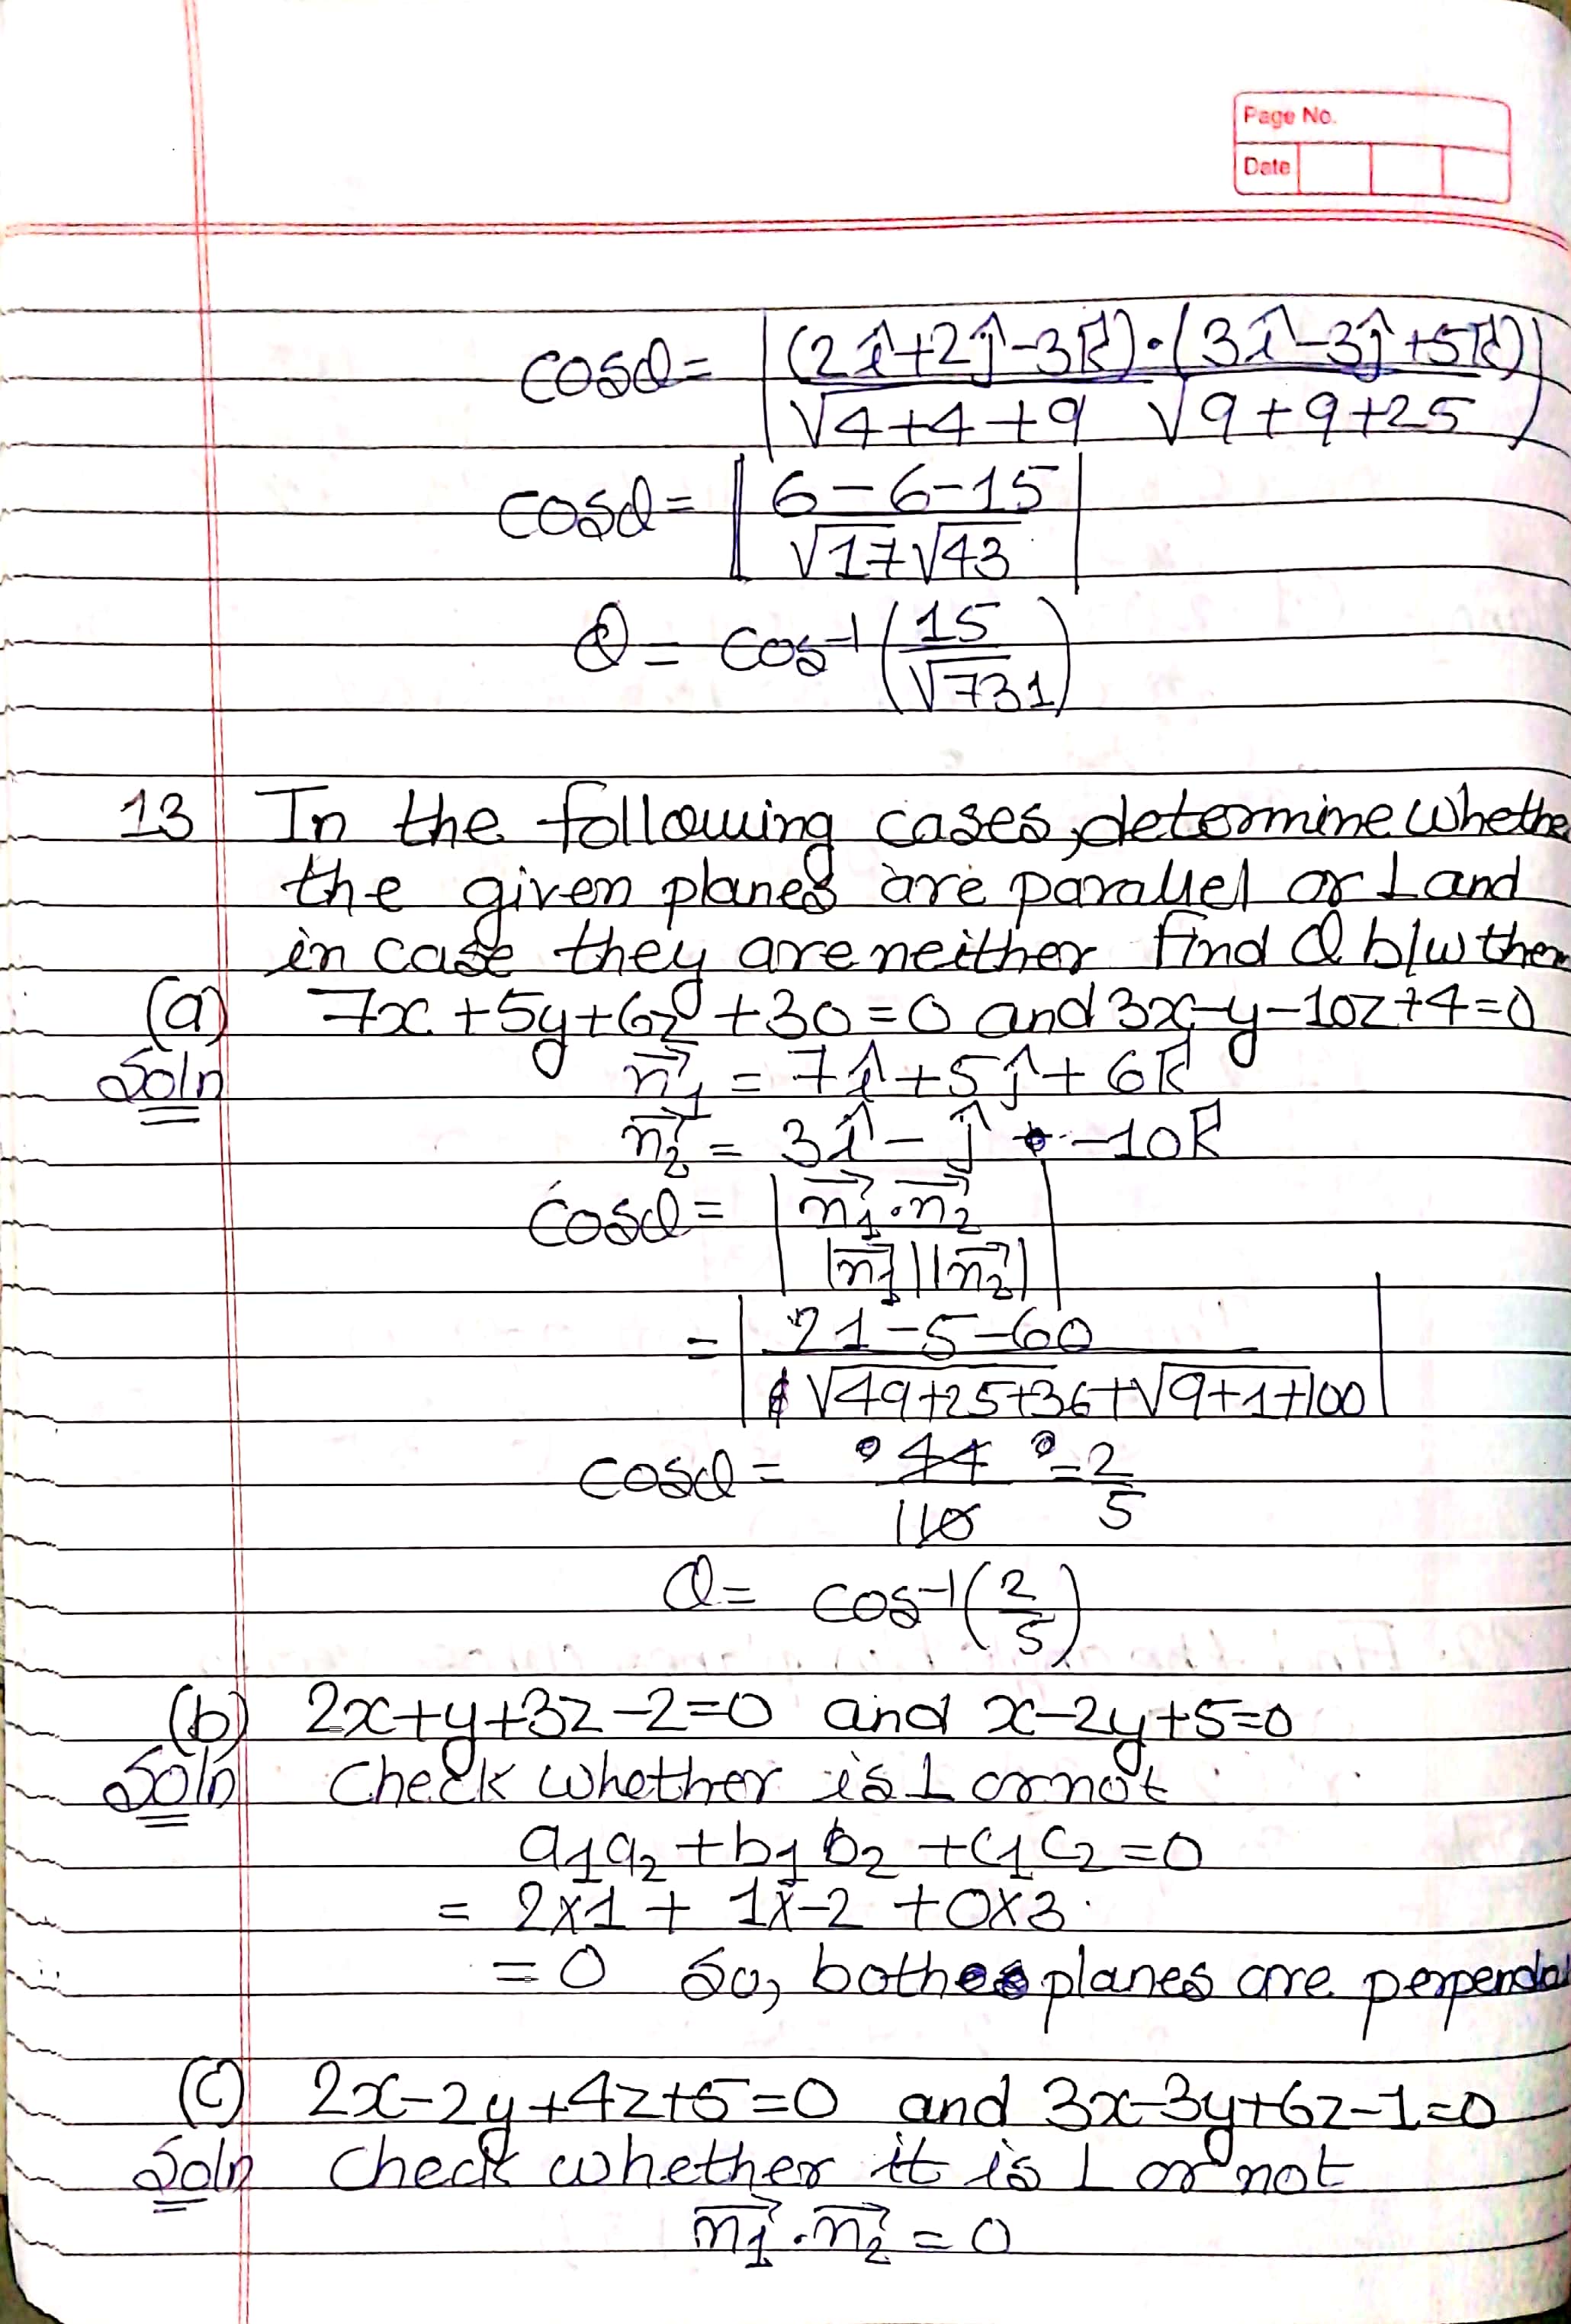 Page No.
Date
cosθ = |(2î+2ĵ-3k̂)·(3î-3ĵ+5k̂) / √4+4+9 √9+9+25|
cosθ = |6-6-15 / √17√43|
θ = cos⁻¹(15/√731)
13 In the following cases, determine whethe
the given planes are parallel or ⊥ and
in case they are neither find θ b/w them
(a) 7x+5y+6z+30=0 and 3x-y-10z+4=0
Soln n⃗₁ = 7î+5ĵ+6k̂
n⃗₂ = 3î-ĵ-10k̂
cosθ = |n⃗₁·n⃗₂ / |n⃗₁||n⃗₂||
= |21-5-60 / √49+25+36+√9+1+100|
cosθ = 44/110 = 2/5
θ = cos⁻¹(2/5)
(b) 2x+y+3z-2=0 and x-2y+5=0
Soln Check whether is ⊥ or not
a₁a₂+b₁b₂+c₁c₂=0
= 2×1+1×-2+0×3
=0 So, both planes are
(c) 2x-2y+4z+5=0 and 3x-3y+6z-1=0
Soln Check whether it is ⊥ or not
n⃗₁·n⃗₂=0